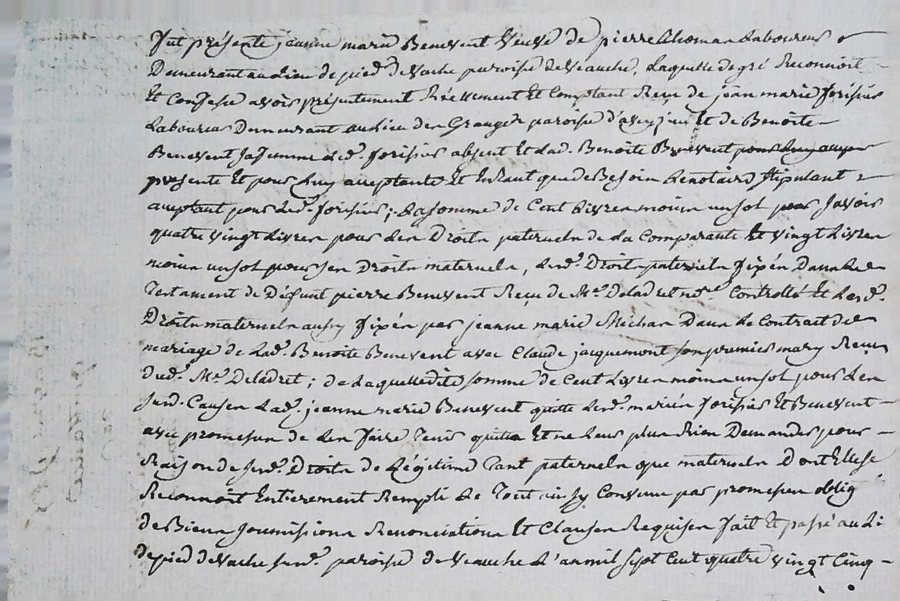 fut présente jeanne marie Benevent veuve de pierre thomas Laboureur
Demeurant au Lieu de pied de vache paroisse de veauche, Laquelle de gré Reconnoit
Et Confesse avoir présentement Réellement Et Comptant Reçu de jean marie forissier
Laboureur Demeurant au Lieu des Granges paroisse d'aveyseu Et de Benoite
Benevent sa femme Led. forissier absent Et Lad. Benoite Benevent pour Luy
présente Et pour Luy acceptante Et Entant que de Besoin Le notaire stipulant
acceptant pour Led. forissier; La somme de Cent Livres moins un sol pour savoir
quatre vingt Livres pour Les Droits paternels de La Comparante Et vingt Livres
moins un sol pour ses Droits maternels, Lesd. Droits paternels fixés Dans Le
Testament de Défunt pierre Benevent Reçu de Me. Deladret no.re Controllé Et Lesd.
Droits maternels aussy fixés par jeanne marie Méchan Dans Le Contrat de
mariage de Lad. Benoite Benevent avec Claude jacquemont son premier mary Reçu
dud. Me. Deladret; de Laquelle dite somme de Cent Livres moins un sol pour Les
susd. Causes Lad. jeanne marie Benevent quitte Lesd. mariés forissier Et Benevent
avec promesse de Les faire Tenir quitte Et ne Leur plus Rien Demander pour
Raison de sesd. Droits de Légitime Tant paternels que maternels Dont Elle se
Reconnoit Entierement Remplie Le Tout ainsy Convenu par promesses oblig
de Biens soumissions Renonciations Et Clauses Requises fait Et passé au Li
de pied de vache susd. paroisse de veauche L'an mil sept Cent quatre vingt Cinq